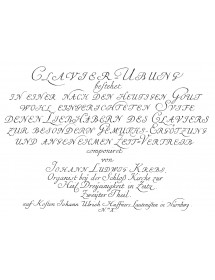 CLAVIER ÜBUNG
bestehet
IN EINER NACH DEN HEUTIGEN GOUT
WOHL EINGERICHTETEN SUITE
DENEN LIEBHABERN DES CLAVIERS
ZUR BESONDERN GEMÜTHS-ERGÖTZUNG
UND ANGENEHMEN ZEIT-VERTREIB
componiret
von
JOHANN LUDWIG KREBS,
Organist bey der Schloß Kirche zur
Heil. Dreyäigkeit in Zeitz
Zweyter Theil.
auf Kosten Johann Ulrich Haffners Lautenisten in Nürnberg